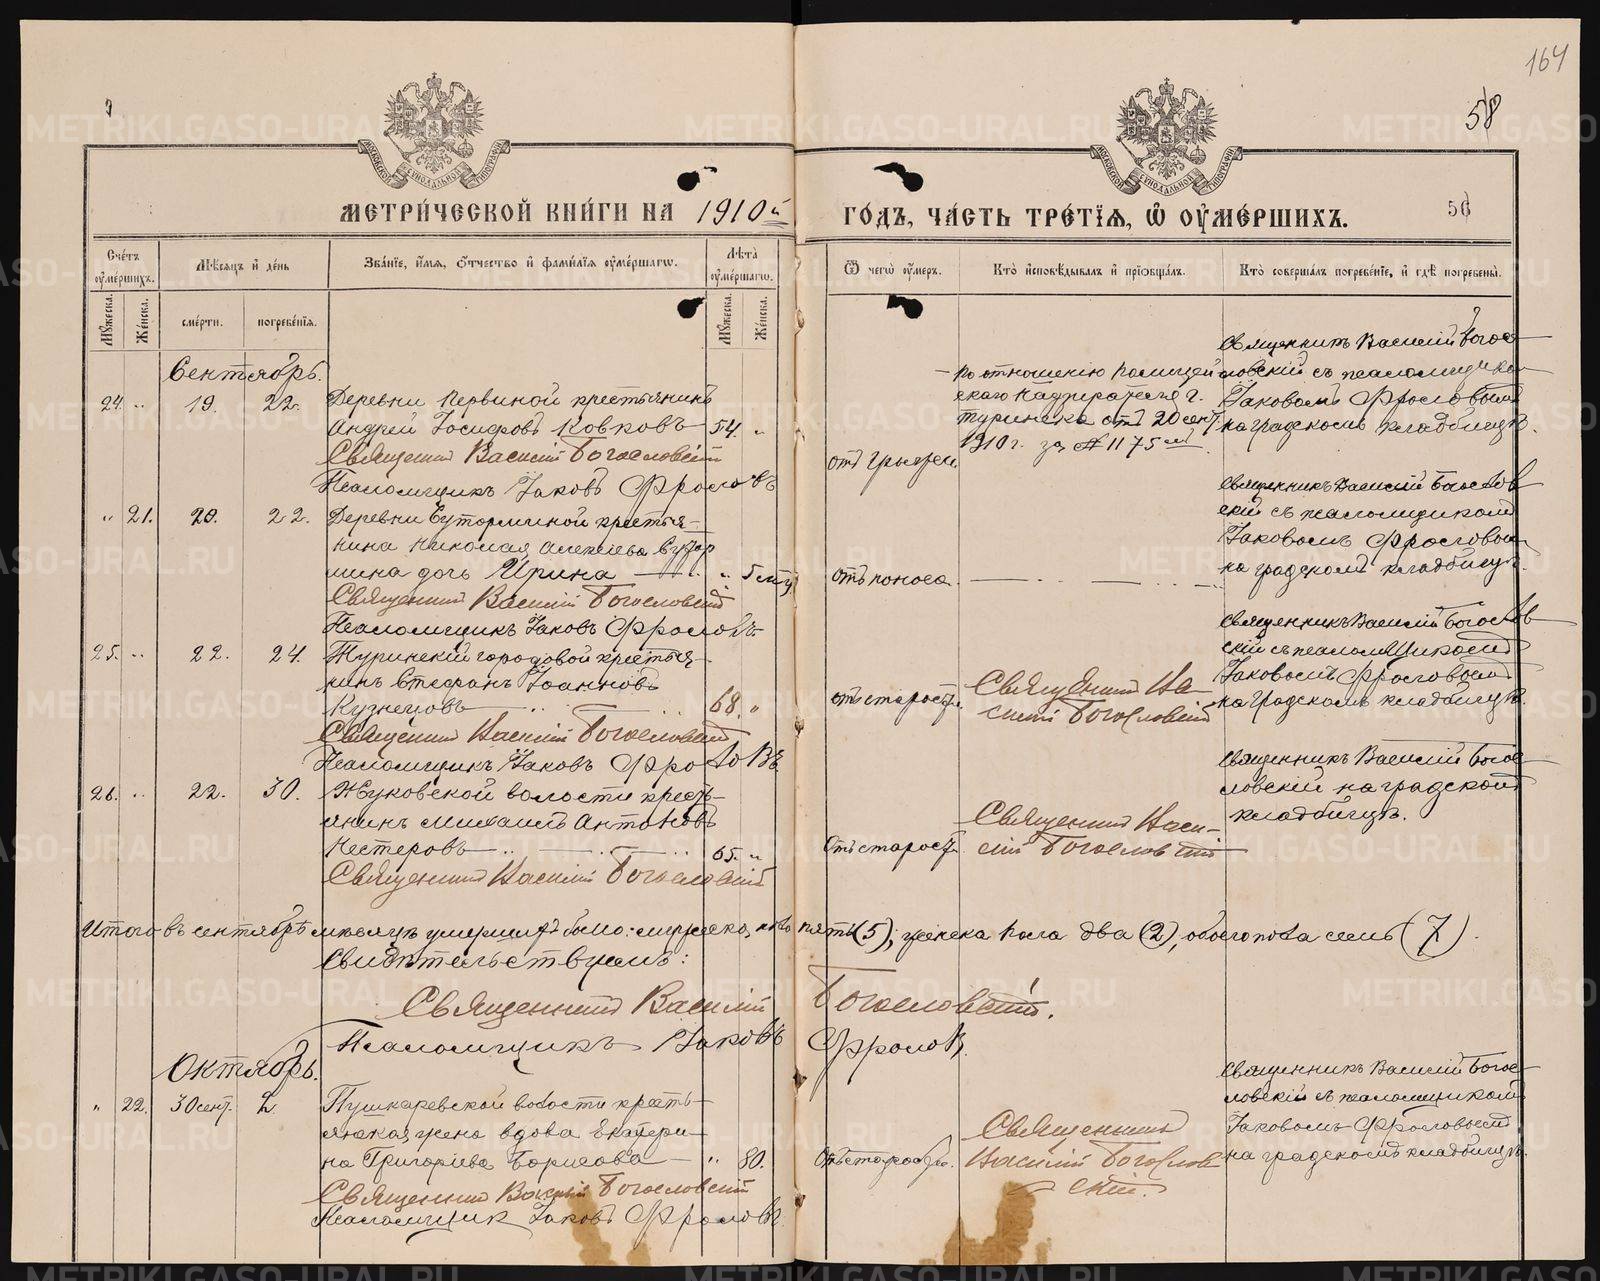 164
58
56
МОСКОВСКОЙ СѴНОДАЛЬНОЙ ТИПОГРАФІИ
МОСКОВСКОЙ СѴНОДАЛЬНОЙ ТИПОГРАФІИ
МЕТРИ́ЧЕСКОЙ КНИ́ГИ НА 1910й
ГО́ДЪ, ЧА́СТЬ ТРЕ́ТЇѦ, Ѡ҆ ОУ҆МЕ́РШИХЪ.
Сче́тъ оу҆ме́ршихъ.
Мѣ́сѧцъ и҆ де́нь
Зва́нїе, и҆́мѧ, ѻ҆́тчество и҆ фами́лїѧ оу҆ме́ршагѡ.
Лѣ́та оу҆ме́ршагѡ.
Ѿ чегѡ̀ оу҆́меръ.
Кто̀ и҆сповѣ́дывалъ и҆ прїѡбща́лъ.
Кто̀ соверша́лъ погребе́нїе, и҆ гдѣ̀ погребены̀.
Мꙋ́жеска.
Же́нска.
сме́рти.
погребе́нїѧ.
Мꙋ́жеска.
Же́нска.
Сентябрь.
24. „ 19. 22.
Деревни Первиной крестьянинъ
Андрей Іосифовъ Ковковъ 54. „
Священникъ Василій Богословскій
Псаломщикъ Іаковъ Фроловъ
По отношенію полицей-
скаго надзирателя г.
Туринска отъ 20 сент.
1910 г. за № 1175
Священникъ Василій Богос-
ловскій съ псаломщикомъ
Іаковомъ Фроловымъ
на градскомъ кладбищѣ.
„ 21. 20. 22.
Деревни Буторминой крестья-
нина Николая Алексѣева
мина дочь Ирина „
Священникъ Василій Богословскій
Псаломщикъ Іаковъ Фроловъ
отъ поноса.
Священникъ Василій Богослов
скій съ псаломщикомъ
Іаковомъ Фроловым
на градскомъ кладбищѣ.
25. „ 22. 24.
Туринскій городовой крестья-
нинъ Стефанъ Іоанновъ
Кузнецовъ 68. „
Священникъ Василій Богословскій
Псаломщикъ Іаковъ Фроловъ
отъ старости.
Священникъ Ва-
силій Богословскій
Священникъ Василій Богослов
скій съ псаломщикомъ
Іаковомъ Фроловымъ
на градскомъ кладбищѣ.
26. „ 22. 30.
Жуковской волости кресть-
янинъ Михаилъ Антоновъ
Нестеровъ 65. „
Священникъ Василій Богословскій
Отъ старости
Священникъ Васи-
лій Богословскій
Священникъ Василій Богос-
ловскій на градскомъ
кладбищѣ.
Итого въ сентябрѣ мѣсяцѣ умершихъ было: мужеска пола пять (5), женска пола два (2), обоего пола семь (7).
Свидѣтельствуемъ:
Священникъ Василій Богословскій.
Псаломщикъ Іаковъ Фроловъ.
Октябрь.
„ 22. 30 сент. 2.
Пушкаревской волости кресть-
янская жена вдова Екатери-
на Григорьева Борисова „ 80.
Священникъ Василій Богословскій
Псаломщикъ Іаковъ Фроловъ.
Отъ старости.
Священникъ
Василій Богослов
скій.
Священникъ Василій Богос-
ловскій съ псаломщикомъ
Іаковомъ Фроловымъ
на градскомъ кладбищѣ.
METRIKI.GASO-URAL.RU